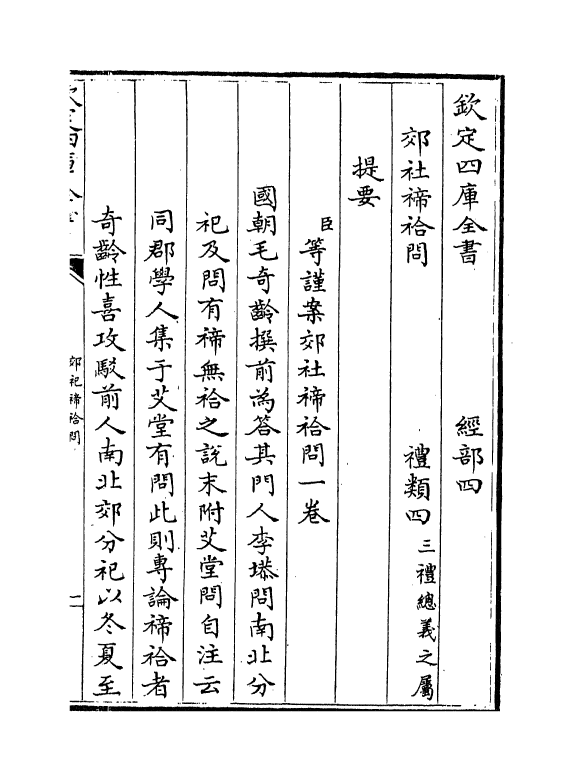 欽定四庫全書　經部四
郊社禘祫問　禮類四三禮總義之屬
提要
臣等謹案郊社禘祫問一卷
國朝毛奇齡撰前為答其門人李塨問南北分
祀及問有禘無祫之說末附艾堂問自注云
同郡學人集于艾堂有問此則專論禘祫者
奇齡性喜攻駁前人南北郊分祀以冬夏至
欽定四庫全書
郊社禘祫問
一